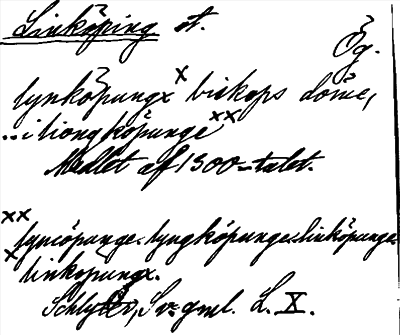 Linköping st.
Ög.
lynköpungx x biskops döme,
.. i liongköpunge xx
Medlet af 1300-talet.
xx lyncöpunge. lyngköpunge. linköpunge.
x linkopungx.
Schlyter, Sv. gml. L. X.